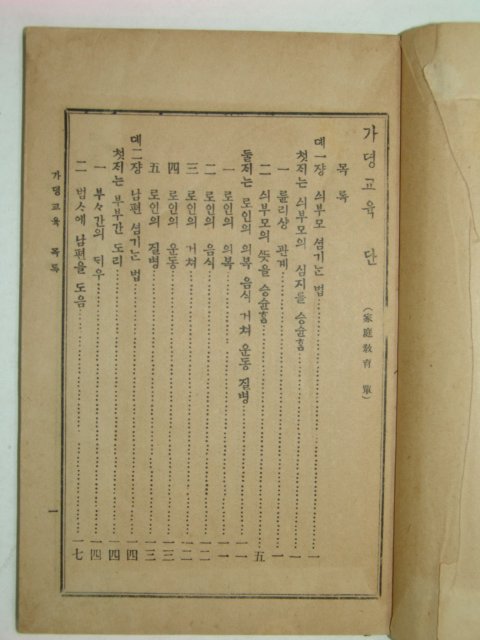 가뎡교육 단 (家庭敎育 單)
목록
뎨一쟝 싀부모 섬기는 법 一
첫재는 싀부모의 심지를 승슌홈 一
一 륜리상 관계 一
二 싀부모의 뜻을 승슌홈 五
둘재는 로인의 의복 음식 거쳐 운동 질병 一一
一 로인의 의복 一一
二 로인의 음식 一二
三 로인의 거쳐 一二
四 로인의 운동 一三
五 로인의 질병 一三
뎨二쟝 남편 섬기는 법 一四
첫재는 부부간 도리 一四
一 부々간의 뎌우 一四
二 범스에 남편을 도음 一七
가뎡교육 목록 一